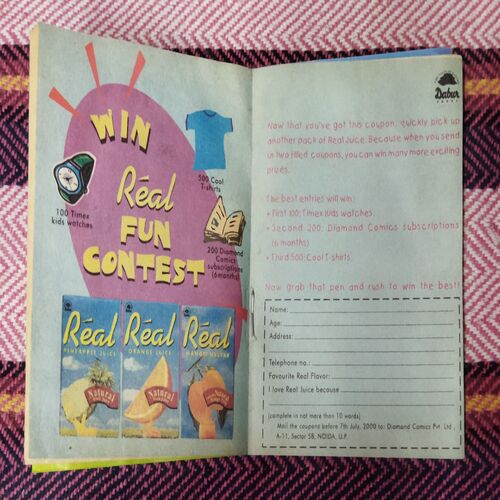 WIN
Réal
FUN
CONTEST
500 Cool
T-shirts
100 Timex
kids watches
200 Diamond
Comics
subscriptions
(6months)
Réal
PINEAPPLE JUICE
Natural
Réal
ORANGE JUICE
Natural
Réal
MANGO NECTAR
Dabur
FOODS
Now that you've got this coupon, quickly pick up
another pack of Real Juice. Because when you send
in two filled coupons, you can win many more exciting
prizes.
The best entries will win:
• First 100: Timex Kids watches
• Second 200: Diamond Comics subscriptions
(6 months)
• Third 500: Cool T-shirts.
Now grab that pen and rush to win the best!
Name:
Age:
Address:
Telephone no.:
Favourite Real Flavor:
I love Real Juice because
(complete in not more than 10 words)
Mail the coupons before 7th July, 2000 to: Diamond Comics Pvt. Ltd.,
A-11, Sector 58, NOIDA, U.P.